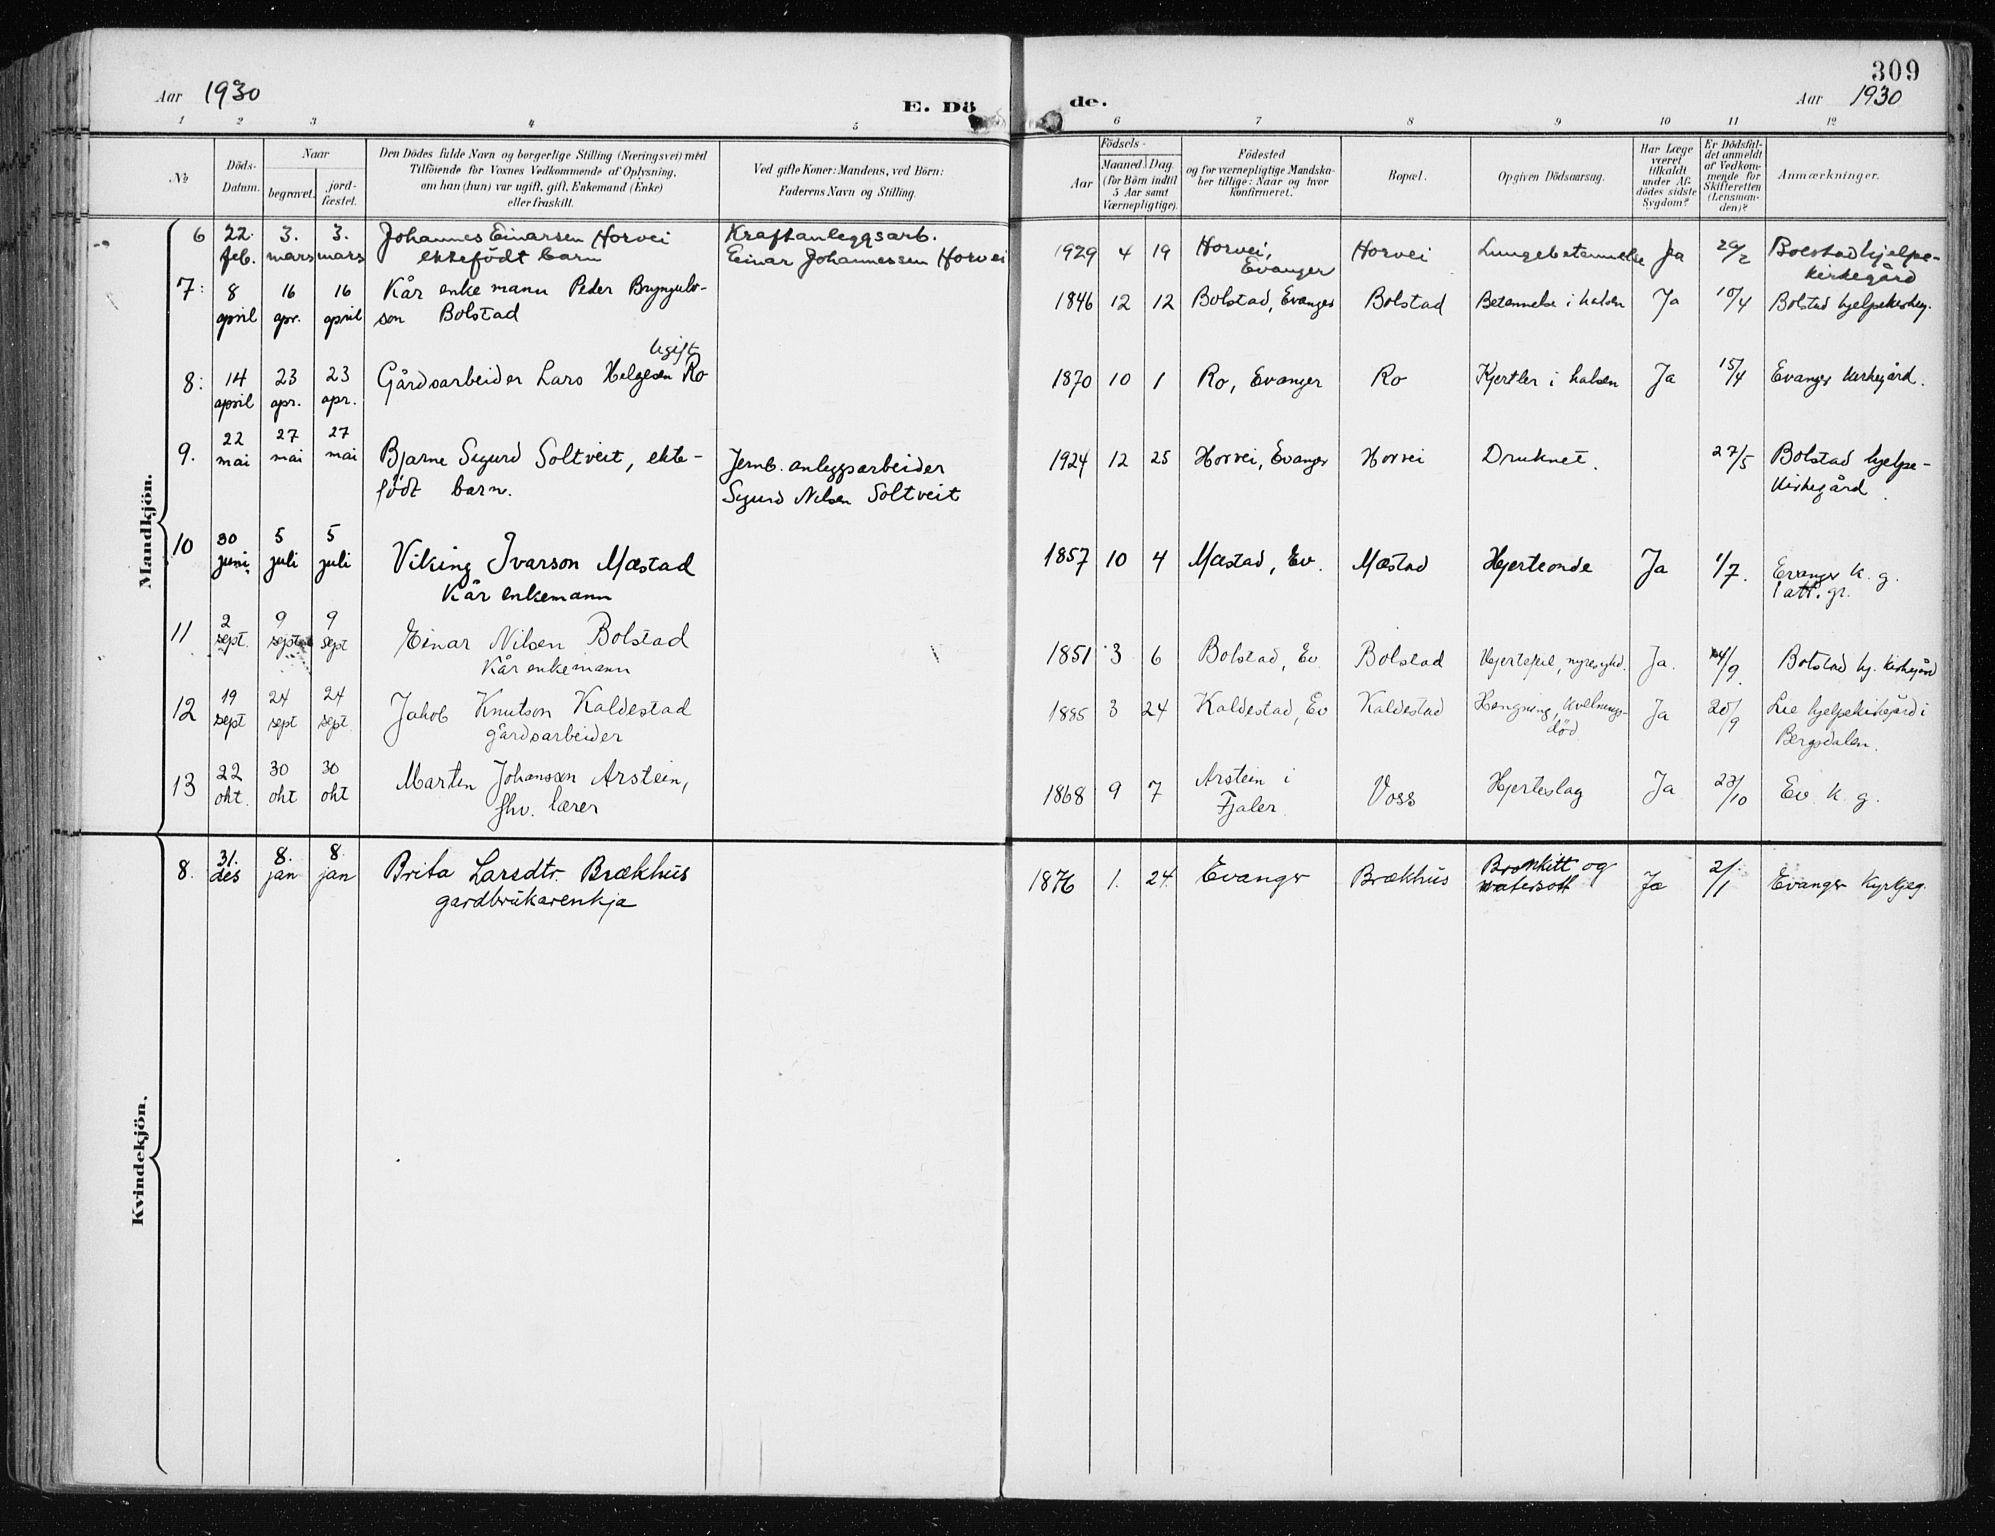 309
Aar 1930 E. Dö de. Aar 1930
1 2 3 4 5 6 7 8 9 10 11 12
№
Döds-
Datum.
Naar
begravet.
jord-
fæstet.
Den Dödes fulde Navn og borgerlige Stilling (Næringsvei) med
Tilföiende for Voxnes Vedkommende af Oplysning,
om han (hun) var ugift, gift, Enkemand (Enke)
eller fraskilt.
Ved gifte Koner: Mandens, ved Börn:
Faderens Navn og Stilling.
Födsels-
Aar
Maaned. Dag.
(for Börn indtil
5 Aar samt
Værnepligtige).
Födested
og for værnepligtige Mandska-
ber tillige: Naar og hvor
konfirmeret.
Bopæl.
Opgiven Dödsaarsag.
Har Læge
været
tilkaldt
under Af-
dödes sidste
Sygdom?
Er Dödsfal-
det anmeldt
af Vedkom-
mende for
Skifteretten
(Lensman-
den)?
Anmærkninger.
Mandkjön.
6 22. 3. 3. Johannes Einarsen Horvei Kraftanleggsarb. 1929 4 19 Horvei, Horvei Lungebetennelse Ja Bolstad hjelpe-
feb. mars mars ektefödt barn Einar Johannessen Horvei Evanger kirkegård
7: 8 16 16 Kår enke mann Peder Brynjulv- 1846 12 12 Bolstad, Evanger Bolstad Betennelse i halsen Ja 10/4 Bolstad hjelpekirkeg.
april apr. april son Bolstad
Ugift
8: 14 23 23 Gårdsarbeider Lars Helgesen Ro 1870 10 1 Ro, Evanger Ro Kjertler i halsen Ja 15/4 Evanger kirkegård.
april apr. apr.
9. 22 27 27 Bjarne Sigurd Soltveit, ekte- Jernb. anleggsarbeider 1924 12 25 Horvei, Evanger Horvei Druknet. 27/5 Bolstad hjelpe-
mai mai mai födt barn. Sigurd Nilsen Soltveit kirkegård.
10 30 5 5 Viking Ivarson Mæstad 1857 10 4 Mæstad, Ev. Mæstad Hjerteonde Ja 1/7. Evanger k. g.
juni juli juli Kår enkemann att. gr.
11 2 9 9 Einar Nilsen Bolstad 1851 3 6 Bolstad, Ev Bolstad Hjertefeil, nyresykd. Ja. 4/9. Bolstad hj. kirkegård
sept. sept sept Kår enkemann
12 19 24 24 Jakob Knutson Kaldestad 1885 3 24 Kaldestad, Ev Kaldestad Hengning, kvelnings- Ja 20/9 Lie hjelpekirkegård i
sept sept sept. gårdsarbeider död Bergsdalen.
13 22 30 30 Marten Johansen Arstein, 1868 9 7 Arstein i Voss Hjerteslag Ja 23/10 Ev. k. g.
okt. okt okt fhv. lærer Fjaler
Kvindekjön.
8. 31. 8. 8. Brita Larsdtr. Brækhus 1876 1. 24. Evanger Brækhus Bronkitt og Ja 2/1 Evanger kyrkjeg.
des jan jan gardbrukarenkja vatersott